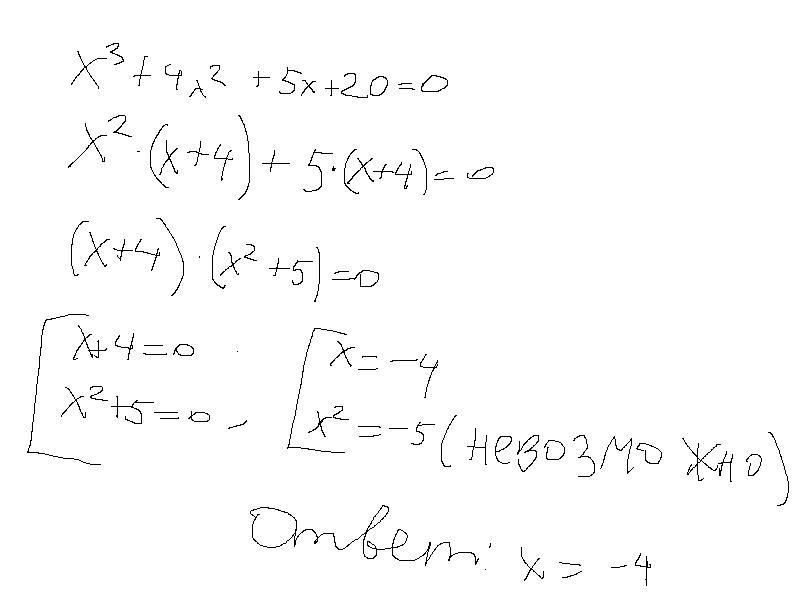 x³+4x²+5x+20=0
x²·(x+4)+5·(x+4)=0
(x+4)·(x²+5)=0
[x+4=0 [x=-4
x²+5=0, x²=-5(невозможно)
Ответ: x=-4